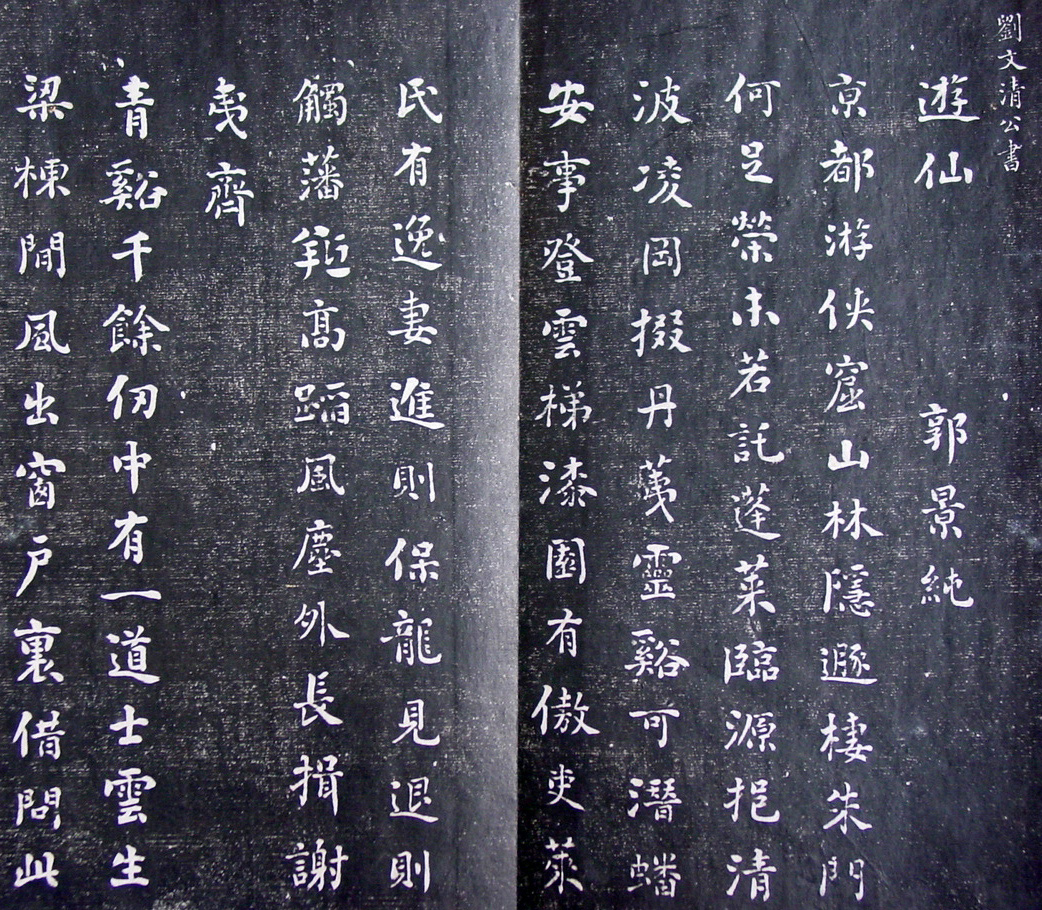 劉文清公書
遊仙 郭景純
京都游俠窟山林隱遯棲朱門
何足榮未若託蓬萊臨源挹清
波凌岡掇丹荑靈谿可潛蟠
安事登雲梯漆園有傲吏萊
氏有逸妻進則保龍見退則
觸藩羝高蹈風塵外長揖謝
夷齊
青谿千餘仞中有一道士雲生
梁棟間風出窗戶裏借問此